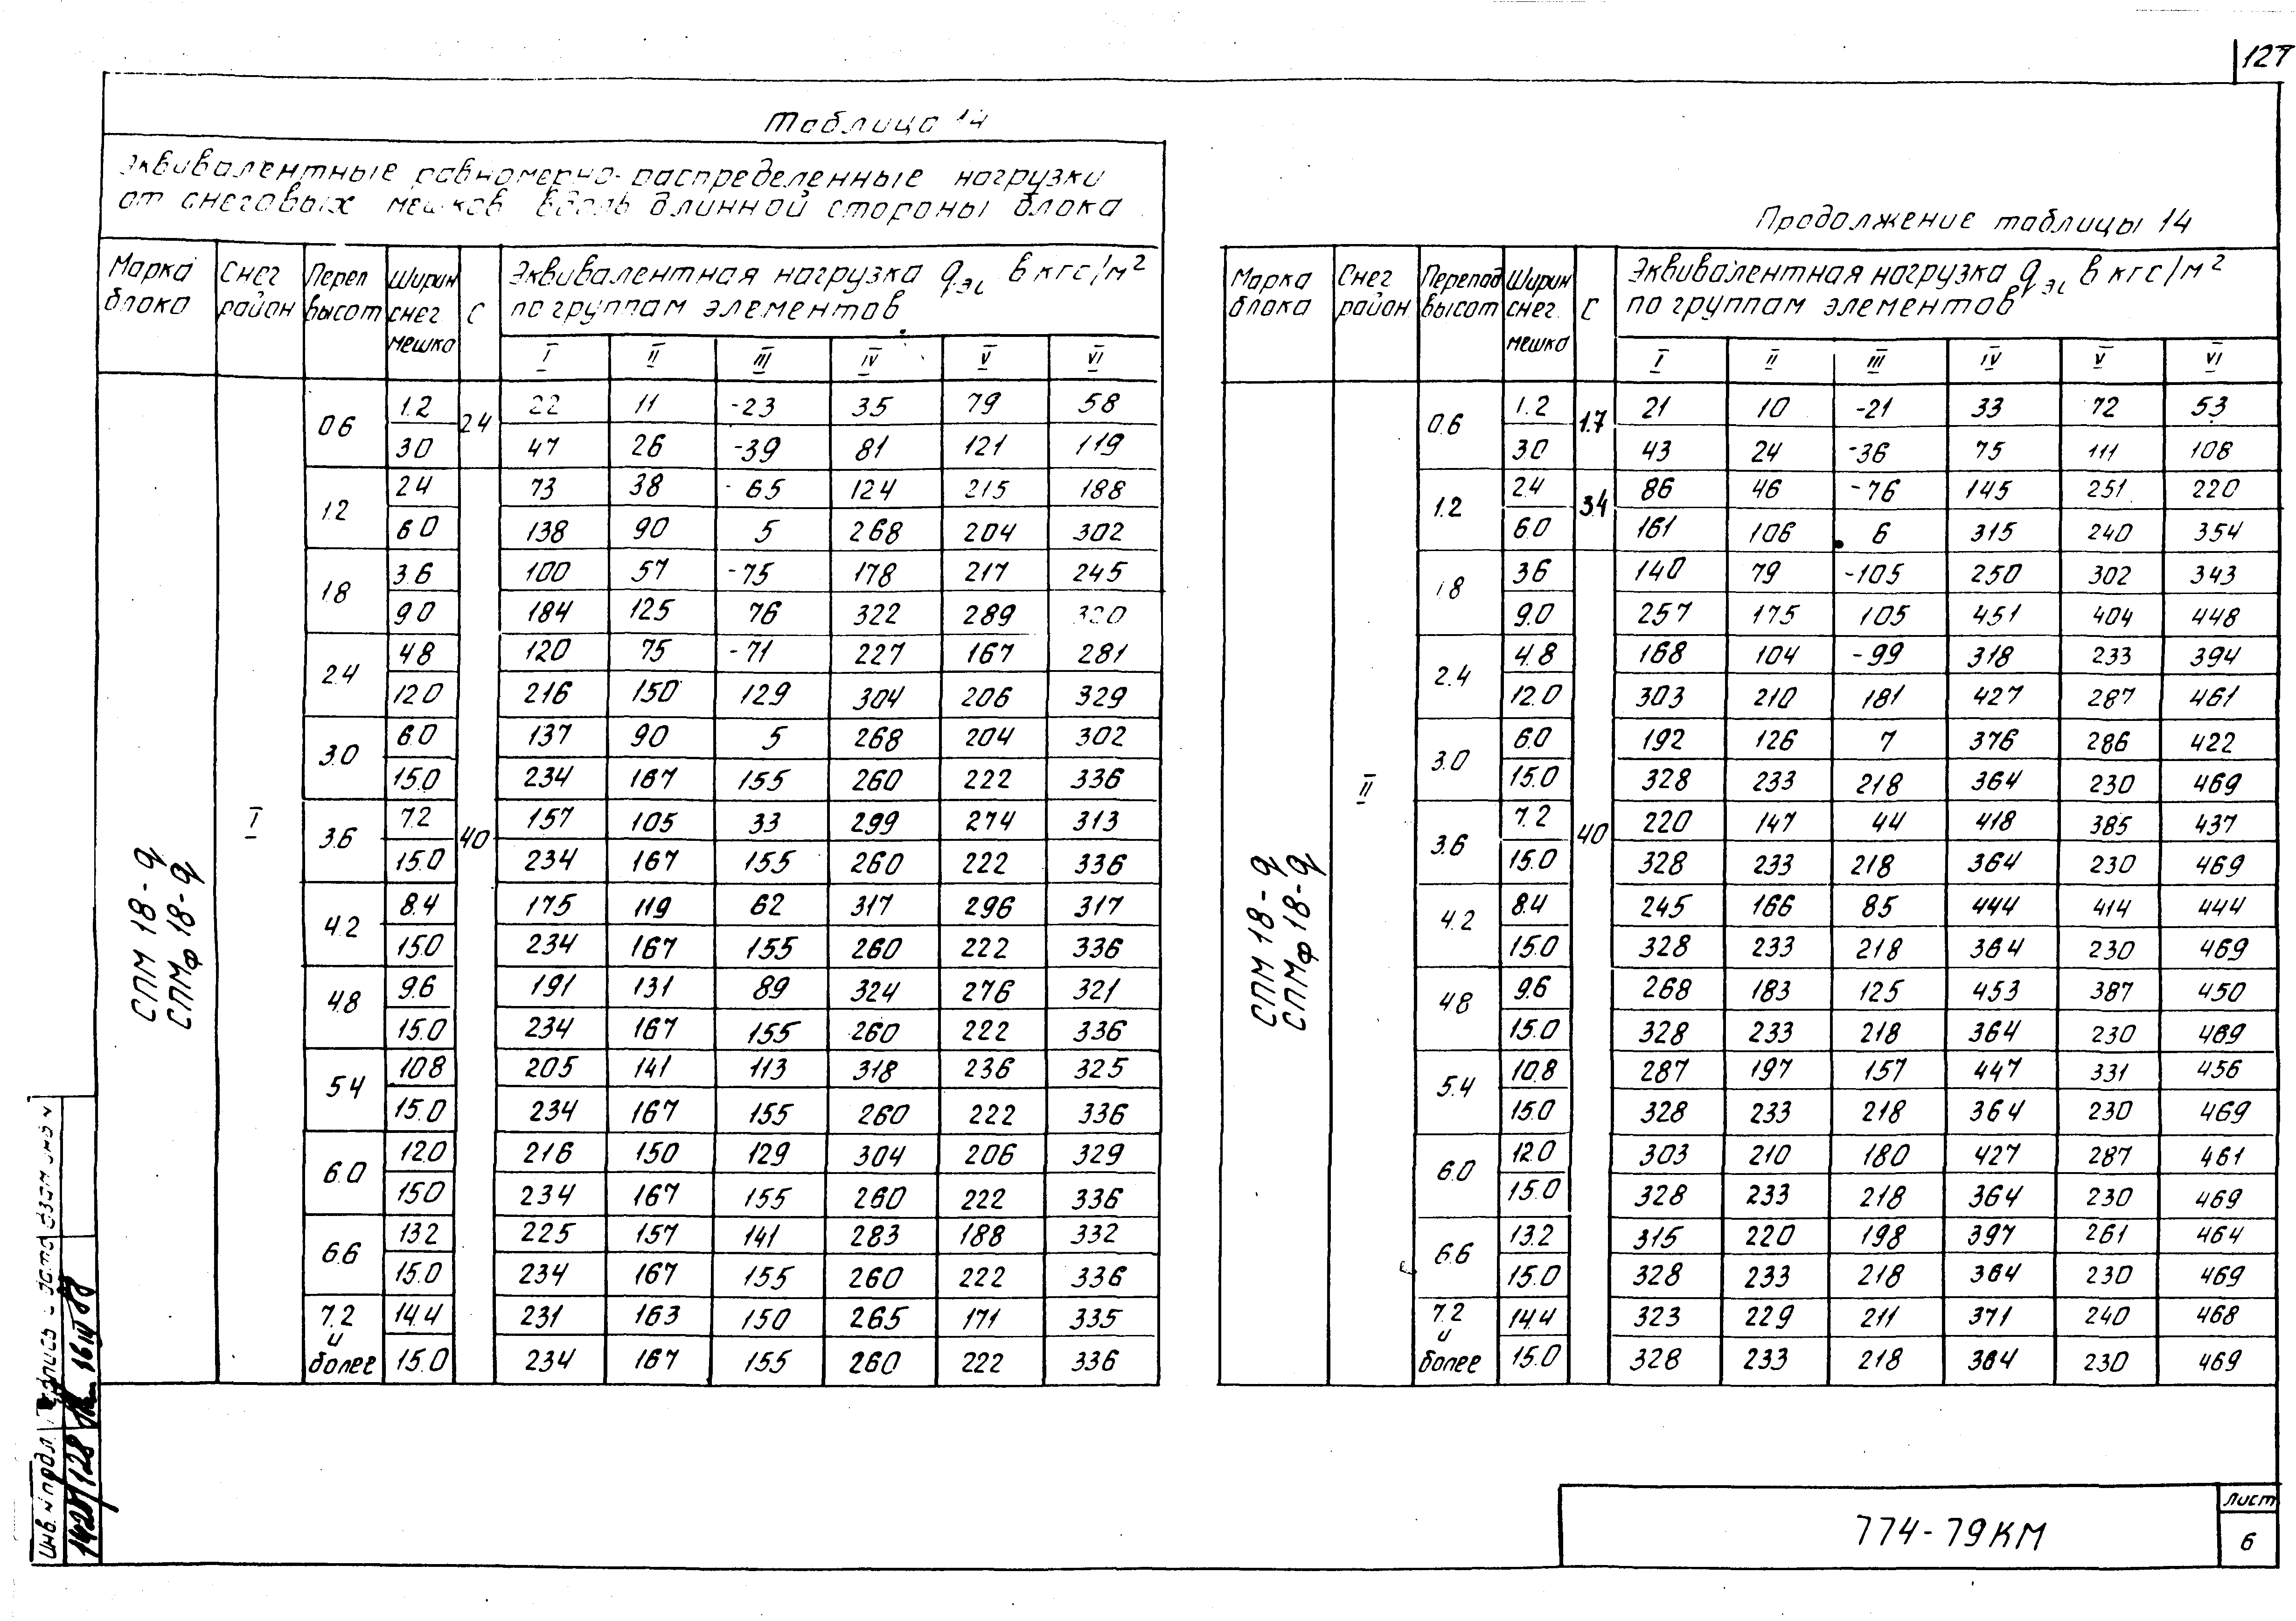 127
Таблица 14
Эквивалентные равномерно-распределенные нагрузки
от снеговых мешков вдоль длинной стороны блока
Марка блока | Снег район | Переп высот | Ширин снег мешка | С | Эквивалентная нагрузка qэс в кгс/м² по группам элементов
I | II | III | IV | V | VI
СПМ 18-q
СПМф 18-q
I
0.6 | 1.2 | 2.4 | 22 | 11 | -23 | 35 | 79 | 58
3.0 | 47 | 26 | -39 | 81 | 121 | 119
1.2 | 2.4 | 73 | 38 | -65 | 124 | 215 | 188
6.0 | 138 | 90 | 5 | 268 | 204 | 302
1.8 | 3.6 | 100 | 57 | -75 | 178 | 217 | 245
9.0 | 184 | 125 | 76 | 322 | 289 | 320
2.4 | 4.8 | 120 | 75 | -71 | 227 | 167 | 281
12.0 | 216 | 150 | 129 | 304 | 206 | 329
3.0 | 6.0 | 137 | 90 | 5 | 268 | 204 | 302
15.0 | 234 | 167 | 155 | 260 | 222 | 336
3.6 | 7.2 | 4.0 | 157 | 105 | 33 | 299 | 274 | 313
15.0 | 234 | 167 | 155 | 260 | 222 | 336
4.2 | 8.4 | 175 | 119 | 62 | 317 | 296 | 317
15.0 | 234 | 167 | 155 | 260 | 222 | 336
4.8 | 9.6 | 191 | 131 | 89 | 324 | 276 | 321
15.0 | 234 | 167 | 155 | 260 | 222 | 336
5.4 | 10.8 | 205 | 141 | 113 | 318 | 236 | 325
15.0 | 234 | 167 | 155 | 260 | 222 | 336
6.0 | 12.0 | 216 | 150 | 129 | 304 | 206 | 329
15.0 | 234 | 167 | 155 | 260 | 222 | 336
6.6 | 13.2 | 225 | 157 | 141 | 283 | 188 | 332
15.0 | 234 | 167 | 155 | 260 | 222 | 336
7.2 и более | 14.4 | 231 | 163 | 150 | 265 | 171 | 335
15.0 | 234 | 167 | 155 | 260 | 222 | 336
Продолжение таблицы 14
Марка блока | Снег район | Перепад высот | Ширин снег. мешка | С | Эквивалентная нагрузка qэс в кгс/м² по группам элементов
I | II | III | IV | V | VI
СПМ 18-q
СПМф 18-q
II
0.6 | 1.2 | 1.7 | 21 | 10 | -21 | 33 | 72 | 53
3.0 | 43 | 24 | -36 | 75 | 111 | 108
1.2 | 2.4 | 3.4 | 86 | 46 | -76 | 145 | 251 | 220
6.0 | 161 | 106 | 6 | 315 | 240 | 354
1.8 | 3.6 | 140 | 79 | -105 | 250 | 302 | 343
9.0 | 257 | 175 | 105 | 451 | 404 | 448
2.4 | 4.8 | 168 | 104 | -99 | 318 | 233 | 394
12.0 | 303 | 210 | 181 | 427 | 287 | 461
3.0 | 6.0 | 192 | 126 | 7 | 376 | 286 | 422
15.0 | 328 | 233 | 218 | 364 | 230 | 469
3.6 | 7.2 | 4.0 | 220 | 147 | 44 | 418 | 385 | 437
15.0 | 328 | 233 | 218 | 364 | 230 | 469
4.2 | 8.4 | 245 | 166 | 85 | 444 | 414 | 444
15.0 | 328 | 233 | 218 | 364 | 230 | 469
4.8 | 9.6 | 268 | 183 | 125 | 453 | 387 | 450
15.0 | 328 | 233 | 218 | 364 | 230 | 469
5.4 | 10.8 | 287 | 197 | 157 | 447 | 331 | 456
15.0 | 328 | 233 | 218 | 364 | 230 | 469
6.0 | 12.0 | 303 | 210 | 180 | 427 | 287 | 461
15.0 | 328 | 233 | 218 | 364 | 230 | 469
6.6 | 13.2 | 315 | 220 | 198 | 397 | 261 | 464
15.0 | 328 | 233 | 218 | 364 | 230 | 469
7.2 и более | 14.4 | 323 | 229 | 211 | 371 | 240 | 468
15.0 | 328 | 233 | 218 | 364 | 230 | 469
Инв. N подл. | Подпись и дата | Взам инв N
774-79КМ
Лист
6